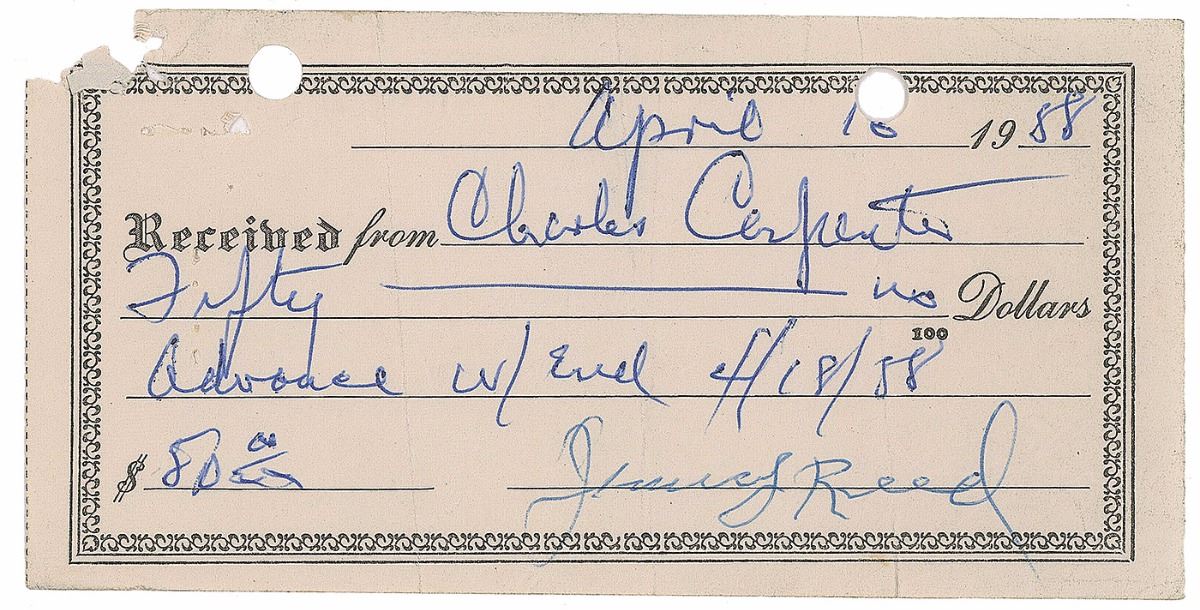 April 19 58
Received from Charles Carpenter
Fifty no/100 Dollars
Advance w/ End 4/18/58
$ 50 00/100 Jimmy Reed